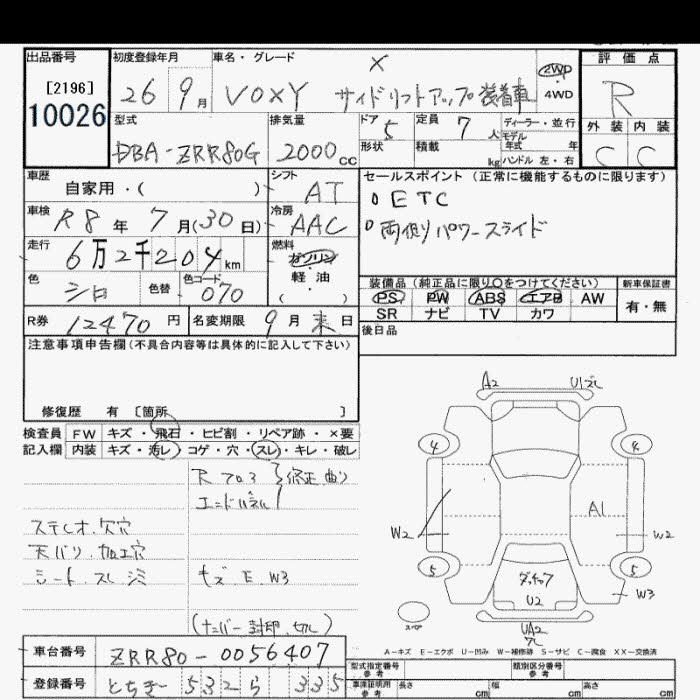 出品番号 初度登録年月 車名・グレード 評価点
[2196] 26 9月 VOXY X サイドリフトアップ装着車 2WD 4WD R
10026 型式 排気量 ドア 定員 ディーラー・並行 外装 内装
DBA-ZRR80G 2000cc 5 7人 モデル年式 年 C C
形状 積載 kg ハンドル 左・右
車歴 自家用・( ) シフト AT セールスポイント (正常に機能するものに限ります)
車検 R8年7月(30日) 冷房 AAC ETC
走行 6万2千204km 燃料 ガソリン 軽油 ( ) 両側パワースライド
色 シロ 色替 色コード 070 装備品 (純正品に限り〇をつけてください) 新車保証書
PS PW ABS エアB AW 有・無
SR ナビ TV カワ
R券 12470円 名変期限 9月末日 後日品
注意事項申告欄(不具合内容等は具体的に記入して下さい)
修復歴 有 [箇所 ]
検査員 FW キズ・飛石・ヒビ割・リペア跡・×要
記入欄 内装 キズ・汚レ・コゲ・穴・スレ・キレ・破レ
修正 曲り
エンドパネル
ステレオ.欠穴
天バリ.加工穴
シート.スレ.シミ キズ.E.W3
(ナンバー封印.切レ)
A2 U1ズレ
4 4
A1
W2 W2
5 5
W3
U2
スペア
UA2
A-キズ E-エクボ U-凹み W-補修跡 S-サビ C-腐食 XX-交換済
車台番号 ZRR80-0056407 型式指定番号 参考 類別区分番号 参考
登録番号 とちぎ 532 ら 335 車庫証明用 参考 長さ cm 幅 cm 高さ cm